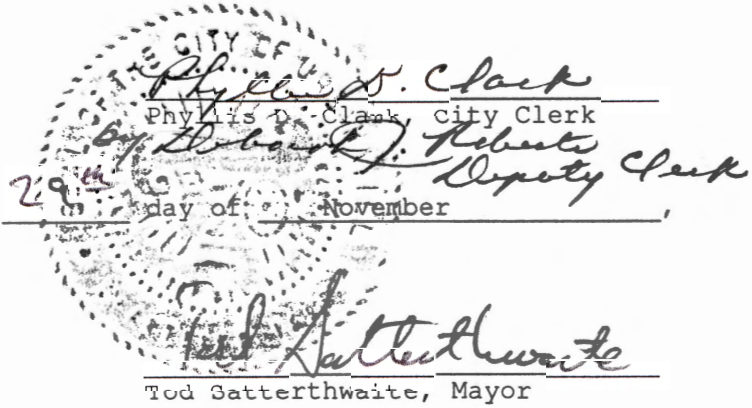 OF THE CITY OF U
Phyllis D. Clark
Phyllis D. Clark, city Clerk
by Deborah J. Roberts
Deputy Clerk
29th day of November ,
Tod Satterthwaite
Tod Satterthwaite, Mayor